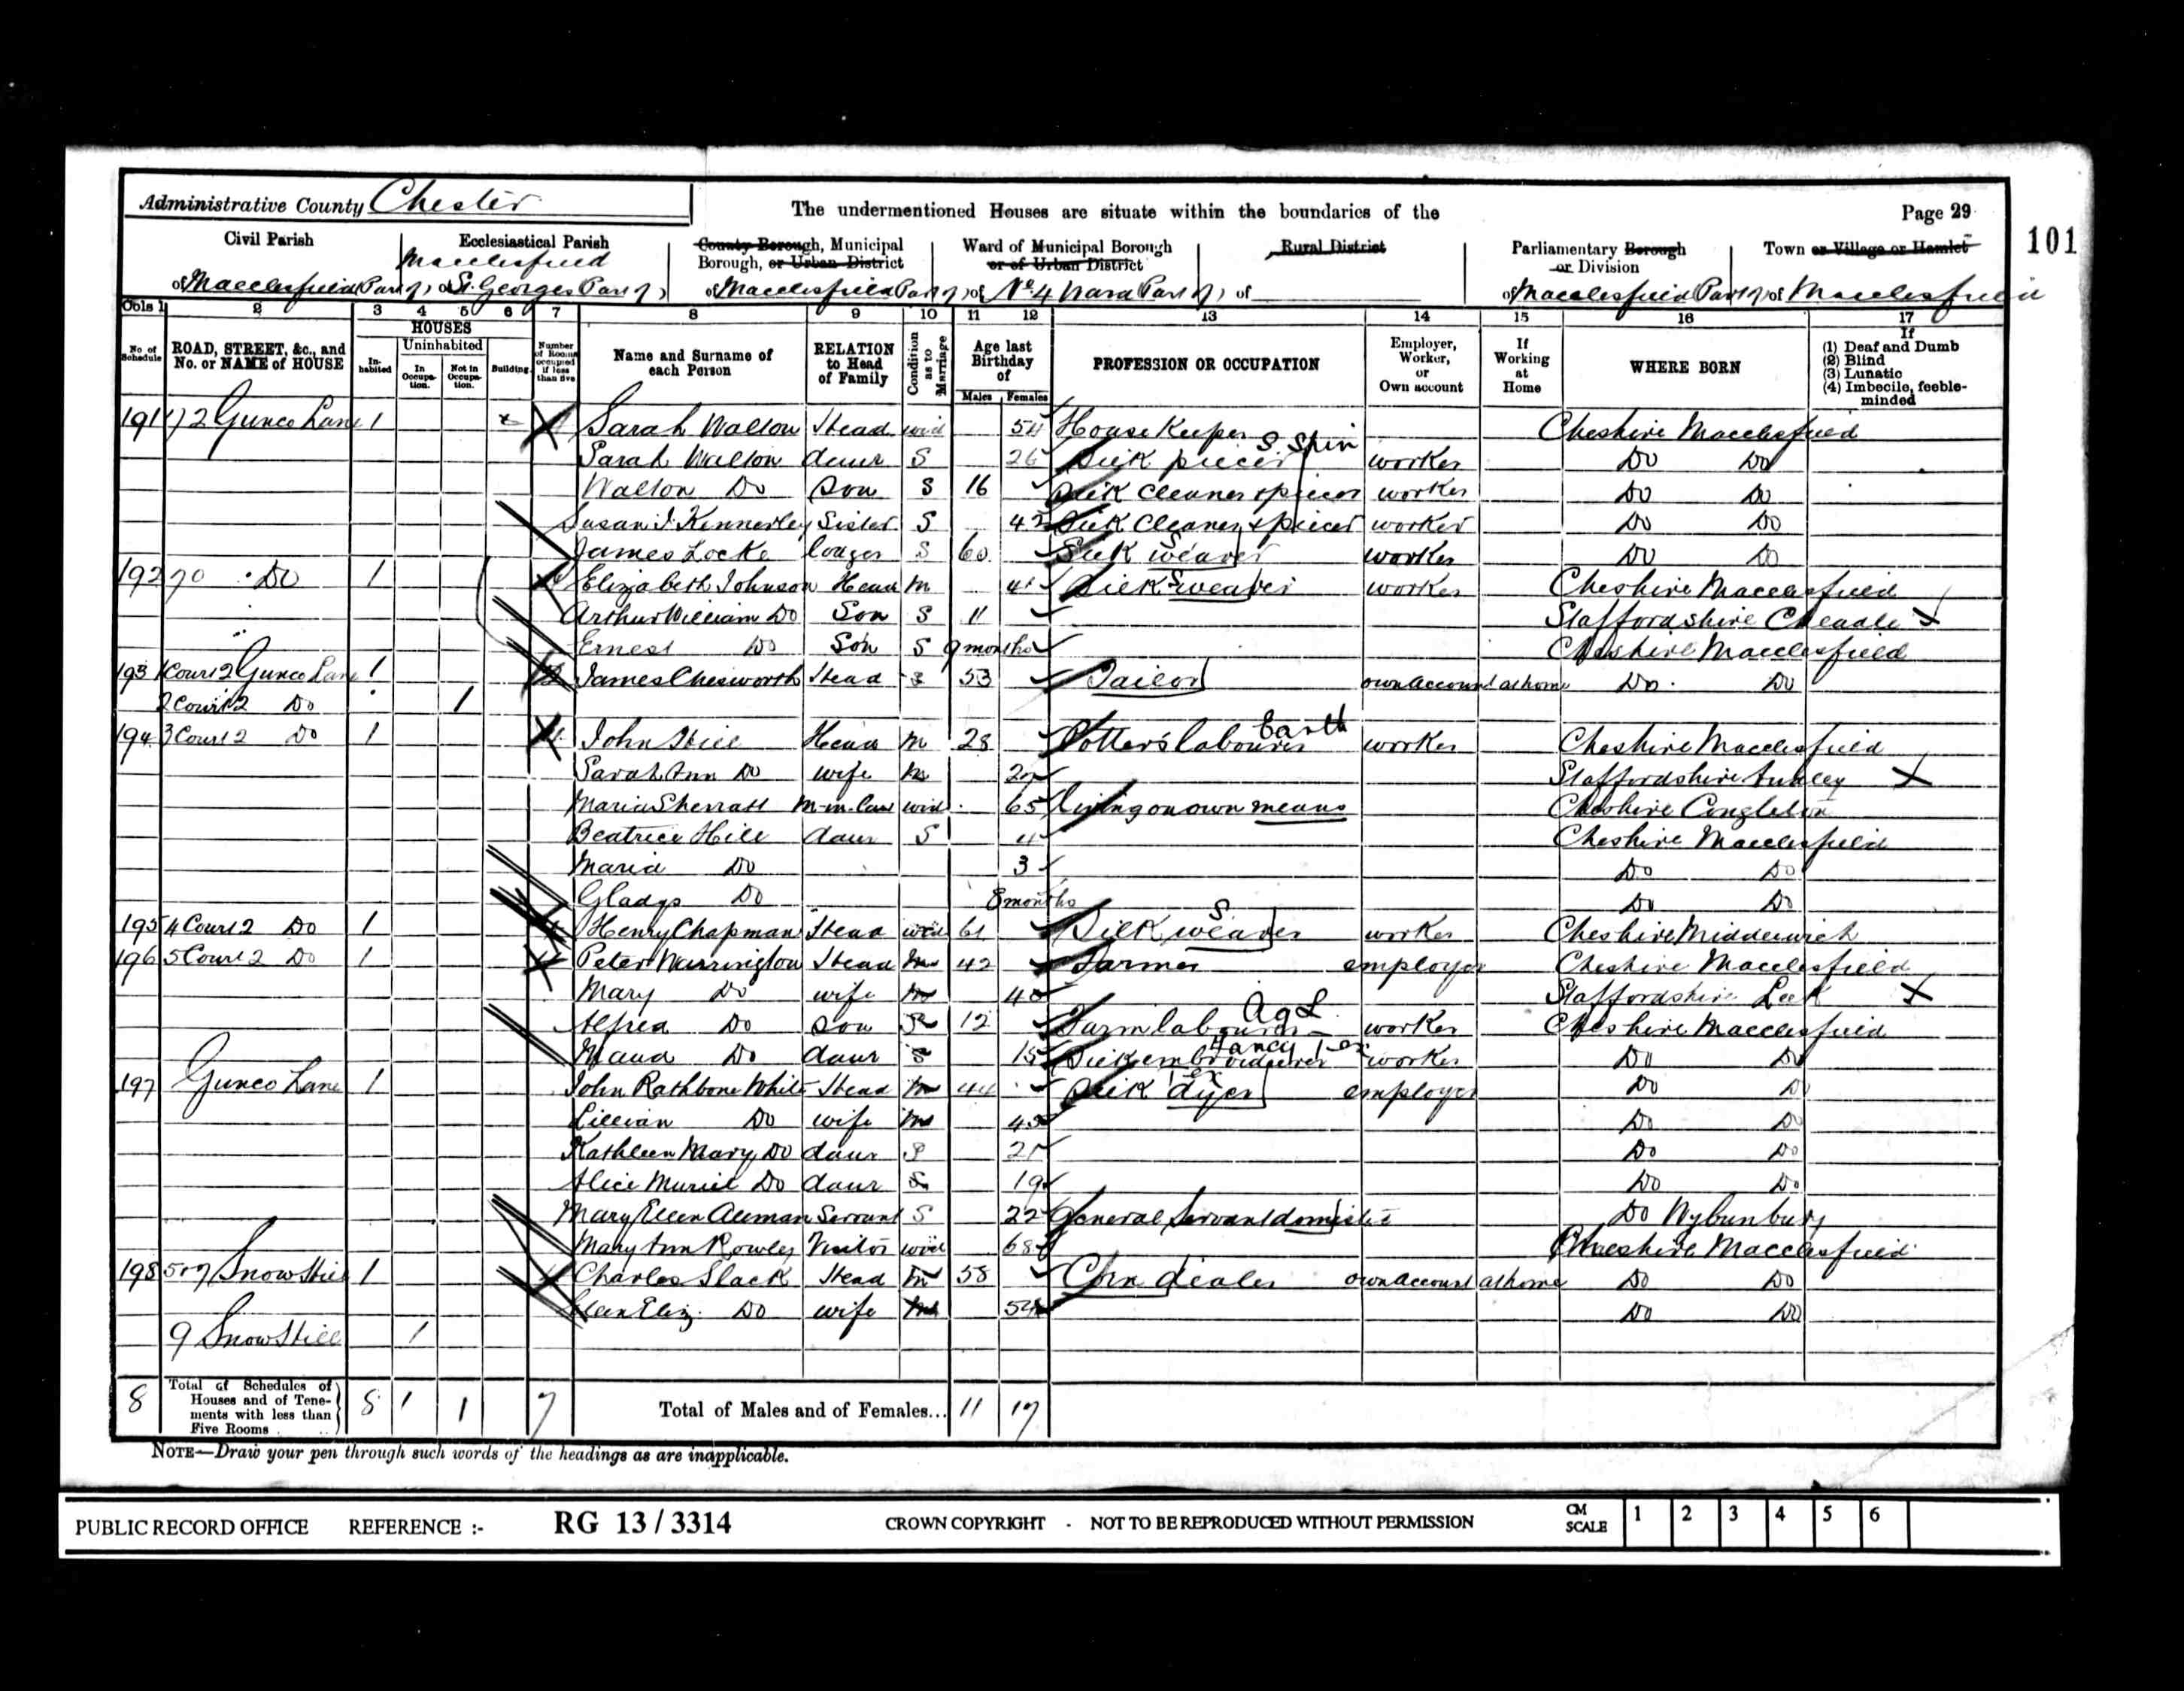 Administrative County Chester
The undermentioned Houses are situate within the boundaries of the
Page 29
101
Civil Parish
of Macclesfield (Part of)
Ecclesiastical Parish
Macclesfield
of St. Georges (Part of)
County Borough, Municipal
Borough, or Urban District
of Macclesfield (Part of)
Ward of Municipal Borough
or of Urban District
of No. 4 Ward (Part of)
Rural District
of
Parliamentary Borough
or Division
of Macclesfield (Part of)
Town or Village or Hamlet
of Macclesfield
Cols 1 2 3 4 5 6 7 8 9 10 11 12 13 14 15 16 17
No. of Schedule
ROAD, STREET, &c., and No. or NAME of HOUSE
HOUSES
Inhabited
Uninhabited
In Occupation.
Not in Occupation.
Building.
Number of Rooms occupied if less than five
Name and Surname of each Person
RELATION to Head of Family
Condition as to Marriage
Age last Birthday of
Males Females
PROFESSION OR OCCUPATION
Employer, Worker, or Own account
If Working at Home
WHERE BORN
If
(1) Deaf and Dumb
(2) Blind
(3) Lunatic
(4) Imbecile, feeble-minded
191 72 Gunco Lane 1 Sarah Walton Head wid 54 House Keeper Cheshire Macclesfield
Sarah Walton daur S 26 Silk piecer S. Spin worker Do Do
Walton Do Son S 16 Silk cleaner & piecer worker Do Do
Susan J. Kennerley Sister S 42 Silk cleaner & piecer worker Do Do
James Locke lodger S 60 Silk weaver S worker Do Do
192 70 Do 1 Elizabeth Johnson Head M 41 Silk weaver S worker Cheshire Macclesfield
Arthur William Do Son S 11 Staffordshire Cheadle
Ernest Do Son S 9 months Cheshire Macclesfield
193 1 Court 2 Gunco Lane 1 James Chesworth Head S 53 Tailor own account at home Do Do
2 Court 2 Do 1
194 3 Court 2 Do 1 John Hill Head M 28 Potter's labourer Earth worker Cheshire Macclesfield
Sarah Ann Do wife M Staffordshire
Maria Sherratt M-in-law wid 65 living on own means Cheshire Congleton
Beatrice Hill daur S 4 Cheshire Macclesfield
Maria Do 3 Do Do
Gladys Do 8 months Do Do
195 4 Court 2 Do 1 Henry Chapman Head wid 61 Silk weaver S worker Cheshire Middlewich
196 5 Court 2 Do 1 Peter Warrington Head M 42 Farmer employer Cheshire Macclesfield
Mary Do wife M 40 Staffordshire Leek
Alfred Do Son S 12 Farm labourer Ag L worker Cheshire Macclesfield
Maud Do daur S 15 Silk embroiderer Fancy worker Do Do
197 Gunco Lane 1 John Rathbone White Head M 44 Silk dyer employer Do Do
Lillian Do wife M 43 Do Do
Kathleen Mary Do daur S 21 Do Do
Alice Muriel Do daur S 19 Do Do
Mary Ellen Servant S 22 General Servant domestic Do Wybunbury
Mary Ann Rowley Visitor wid 68 Cheshire Macclesfield
198 5 & 7 Snow Hill 1 Charles Slack Head M 58 Corn dealer own account at home Do Do
Ellen Eliz. Do wife M 54 Do Do
9 Snow Hill 1
8 Total of Schedules of Houses and of Tenements with less than Five Rooms 8 1 1 7 Total of Males and of Females... 11 17
NOTE—Draw your pen through such words of the headings as are inapplicable.
PUBLIC RECORD OFFICE REFERENCE :- RG 13 / 3314 CROWN COPYRIGHT - NOT TO BE REPRODUCED WITHOUT PERMISSION CM SCALE 1 2 3 4 5 6